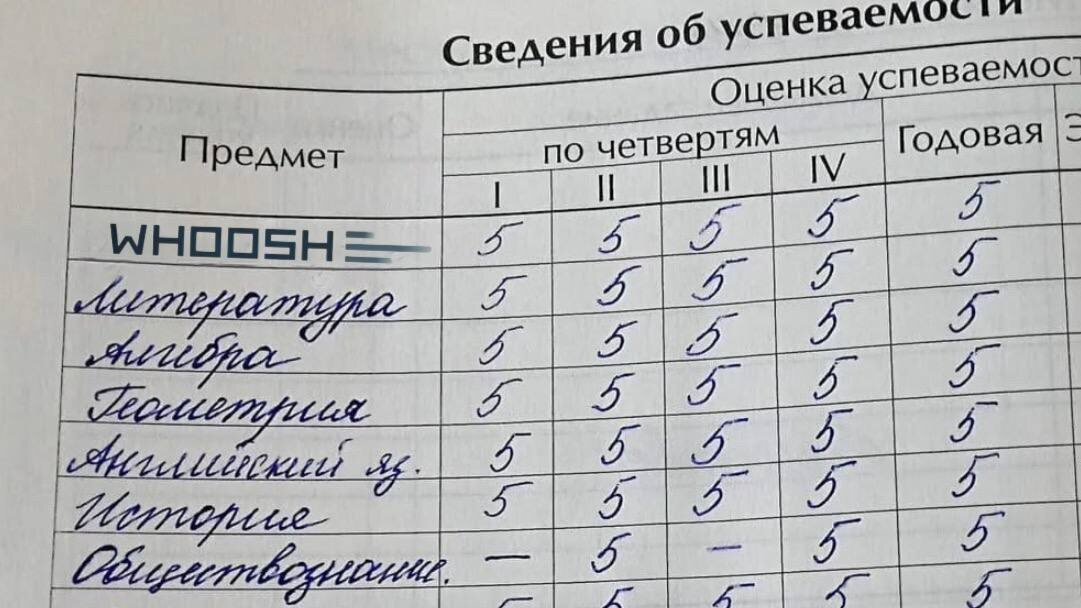 Сведения об успеваемости
Оценка успеваемост
Предмет
по четвертям
Годовая
Э
I II III IV
WHOOSH 5 5 5 5 5
Литература 5 5 5 5 5
Алгебра 5 5 5 5 5
Геометрия 5 5 5 5 5
Английский яз. 5 5 5 5 5
История 5 5 5 5 5
Обществознание. — 5 — 5 5
5 5 5 5 5